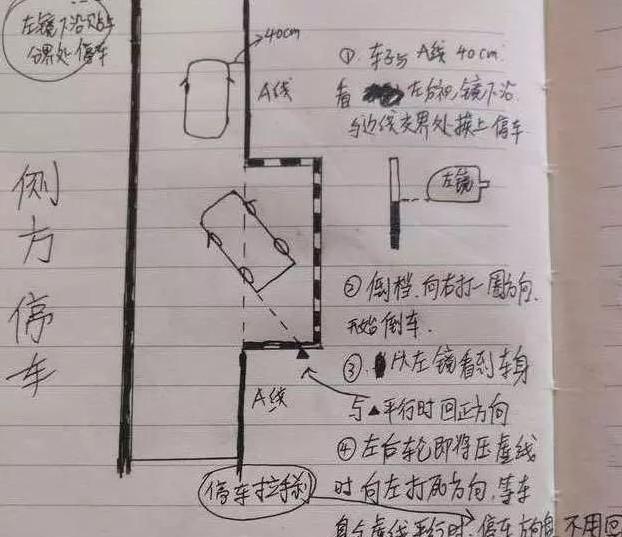 左镜下沿贴与
分界处停车
侧方停车
40cm
A线
① 车子与 A线 40cm.
看 左后视镜下沿
与边线交界处挨上停车
左镜
② 倒档.向右打一圈方向.
开始倒车.
③ 从左镜看到车身
与▲平行时回正方向
④ 左后轮即将压虚线
时向左打死方向,等车
身与虚线平行时,停车方向 不用回
A线
停车拉手刹